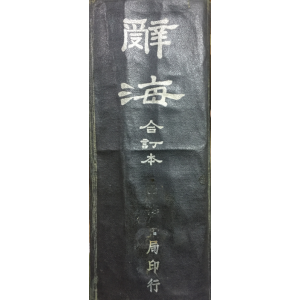 辭海
合訂本
局印行